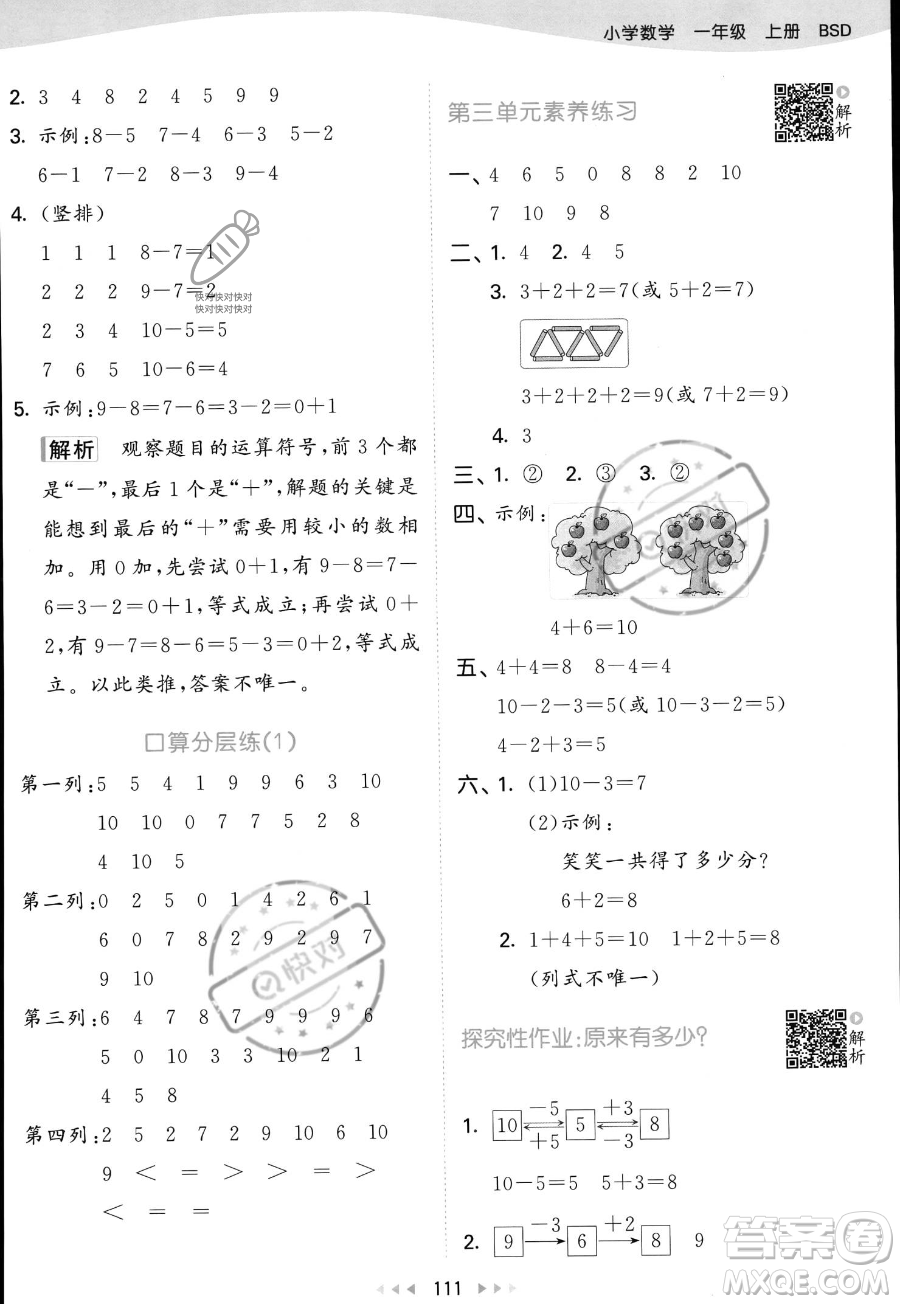 小学数学 一年级 上册 BSD
2. 3 4 8 2 4 5 9 9
3. 示例:8-5 7-4 6-3 5-2
6-1 7-2 8-3 9-4
4.(竖排)
1 1 1 8-7=1
2 2 2 9-7=2
2 3 4 10-5=5
7 6 5 10-6=4
5. 示例:9-8=7-6=3-2=0+1
解析 观察题目的运算符号,前3个都
是“-”,最后1个是“+”,解题的关键是
能想到最后的“+”需要用较小的数相
加。用0加,先尝试0+1,有9-8=7-
6=3-2=0+1,等式成立;再尝试0+
2,有9-7=8-6=5-3=0+2,等式成
立。以此类推,答案不唯一。
口算分层练(1)
第一列:5 5 4 1 9 9 6 3 10
10 10 0 7 7 5 2 8
4 10 5
第二列:0 2 5 0 1 4 2 6 1
6 0 7 8 2 9 2 9 7
9 10
第三列:6 4 7 8 7 9 9 9
4 5 8
第四列:2 5 2 7 2 9 10 6 10
9 < = > > = = >
< = = =
第三单元素养练习
解析
一、4 6 5 0 8 8 2 10
7 10 9 8
二、1. 4 2. 4 5
3. 3+2+2=7(或5+2=7)
3+2+2+2=9(或7+2=9)
4. 3
三、1. ② 2. ③ 3. ②
四、示例:
4+6=10
五、4+4=8 8-4=4
10-2-3=5(或10-3-2=5)
4-2+3=5
六、1. (1)10-3=7
(2)示例:
笑笑一共得了多少分?
6+2=8
2. 1+4+5=10 1+2+5=8
(列式不唯一)
探究性作业:原来有多少?
解析
1. 10 -5 +5 5 +3 -3 8
10-5=5 5+3=8
2. 9 -3 6 +2 8 9
111
快对快对快对
快对快对快对
快对
快对
答案圈
MXQE.COM